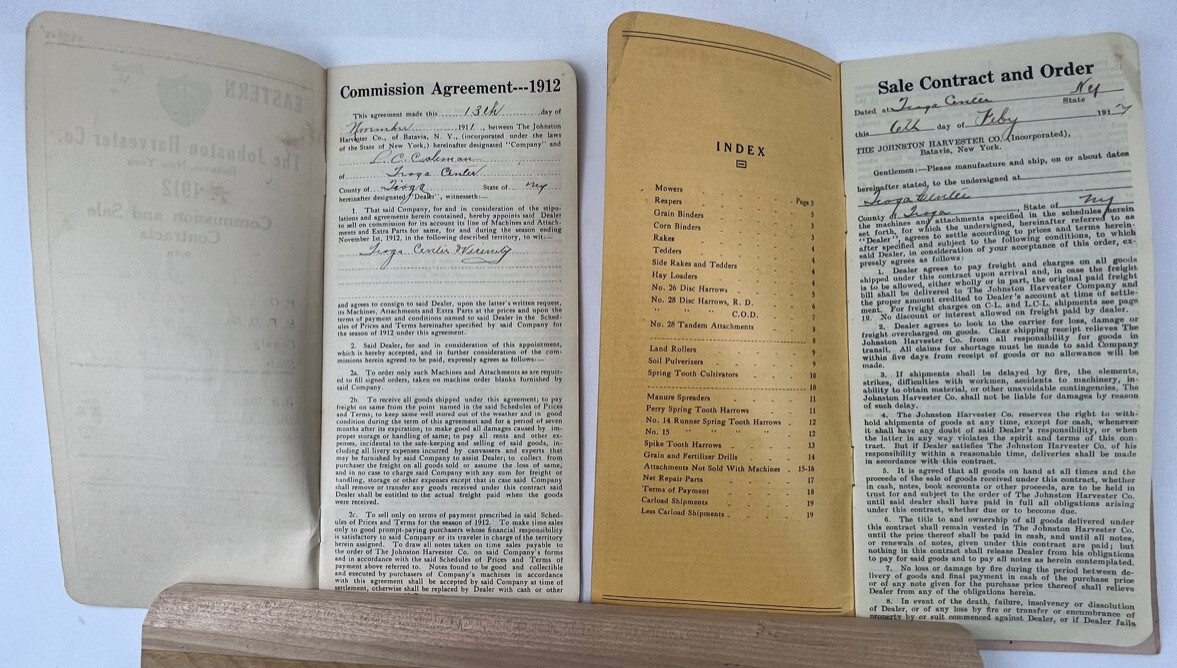 EASTERN
The Johnston Harvester Co.
Batavia, New York
1912
Commission and Sale
Contracts
Commission Agreement---1912
This agreement made this 13th day of
November 1911, between The Johnston
Harvester Co., of Batavia, N. Y., (incorporated under the laws
of the State of New York,) hereinafter designated "Company" and
P. C. Coleman
of Tioga Center
County of Tioga State of NY
hereinafter designated "Dealer", witnesseth:—
1. That said Company, for and in consideration of the stipu-
lations and agreements herein contained, hereby appoints said Dealer
to sell on commission for its account its line of Machines and Attach-
ments and Extra Parts for same, for and during the season ending
November 1st, 1912, in the following described territory, to wit:—
Tioga Center Vicinity
and agrees to consign to said Dealer, upon the latter's written request,
its Machines, Attachments and Extra Parts at the prices and upon the
terms of payment and conditions named to said Dealer in the Sched-
ules of Prices and Terms hereinafter specified by said Company for
the season of 1912 under this agreement.
2. Said Dealer, for and in consideration of this appointment,
which is hereby accepted, and in further consideration of the com-
missions herein agreed to be paid, expressly agrees as follows:—
2a. To order only such Machines and Attachments as are requir-
ed to fill signed orders, taken on machine order blanks furnished by
said Company.
2b. To receive all goods shipped under this agreement; to pay
freight on same from the point named in the said Schedules of Prices
and Terms, to keep same well stored out of the weather and in good
condition during the term of this agreement and for a period of seven
months after its expiration; to make good all damages caused by im-
proper storage or handling of same; to pay all rents and other ex-
penses, incidental to the safe-keeping and selling of said goods, in-
cluding all livery expenses incurred by canvassers and experts that
may be furnished by said Company to assist Dealer; to collect from
purchaser the freight on all goods sold or assume the loss of same,
and in no case to charge said Company with any sum for freight or
handling, storage or other expenses except that in case said Company
shall remove or transfer any goods received under this contract said
Dealer shall be entitled to the actual freight paid when the goods
were received.
2c. To sell only on terms of payment prescribed in said Sched-
ules of Prices and Terms for the season of 1912. To make time sales
only to good prompt-paying purchasers whose financial responsibility
is satisfactory to said Company or its traveler in charge of the territory
herein assigned. To draw all notes taken on time sales payable to
the order of The Johnston Harvester Co. on said Company's forms
and in accordance with the said Schedules of Prices and Terms of
payment above referred to. Notes found to be good and collectible
and executed by purchasers of Company's machines in accordance
with this agreement shall be accepted by said Company at time of
settlement, otherwise shall be replaced by Dealer with cash or other
INDEX
Mowers
Reapers Page 3
Grain Binders 3
Corn Binders 3
Rakes 4
Tedders 4
Side Rakes and Tedders 4
Hay Loaders 4
No. 26 Disc Harrows 5
No. 28 Disc Harrows, R. D. 6
" " " C.O.D. 7
No. 28 Tandem Attachments 7
8
Land Rollers 9
Soil Pulverizers 9
Spring Tooth Cultivators 10
10
Manure Spreaders 11
Perry Spring Tooth Harrows 11
No. 14 Runner Spring Tooth Harrows 12
No. 15 " " " " 12
Spike Tooth Harrows 13
Grain and Fertilizer Drills 14
Attachments Not Sold With Machines 15-16
Net Repair Parts 17
Terms of Payment 18
Carload Shipments 19
Less Carload Shipments 19
Sale Contract and Order
Dated at Tioga Center State NY
this 6th day of Feby 191
THE JOHNSTON HARVESTER CO. (Incorporated),
Batavia, New York.
Gentlemen:—Please manufacture and ship, on or about dates
hereinafter stated, to the undersigned at
Tioga Center
County of Tioga, State of NY
the machines and attachments specified in the schedules herein
set forth, for which the undersigned, hereinafter referred to as
"Dealer", agrees to settle according to prices and terms herein-
after specified and subject to the following conditions, to which
said Dealer, in consideration of your acceptance of this order, ex-
pressly agrees as follows:
1. Dealer agrees to pay freight and charges on all goods
shipped under this contract upon arrival and, in case the freight
is to be allowed, either wholly or in part, the original paid freight
bill shall be delivered to The Johnston Harvester Company and
the proper amount credited to Dealer's account at time of settle-
ment. For freight charges on C-L. and L.C-L. shipments see page
19. No discount or interest allowed on freight paid by dealer.
2. Dealer agrees to look to the carrier for loss, damage or
freight overcharged on goods. Clear shipping receipt relieves The
Johnston Harvester Co. from all responsibility for goods in
transit. All claims for shortage must be made to said Company
within five days from receipt of goods or no allowance will be
made.
3. If shipments shall be delayed by fire, the elements,
strikes, difficulties with workmen, accidents to machinery, in-
ability to obtain material, or other unavoidable contingencies, The
Johnston Harvester Co. shall not be liable for damages by reason
of such delay.
4. The Johnston Harvester Co. reserves the right to with-
hold shipments of goods at any time, except for cash, whenever
it shall have any doubt of said Dealer's responsibility, or when
the latter in any way violates the spirit and terms of this con-
tract. But if Dealer satisfies The Johnston Harvester Co. of his
responsibility within a reasonable time, deliveries shall be made
in accordance with this contract.
5. It is agreed that all goods on hand at all times and the
proceeds of the sale of goods received under this contract, whether
in cash, notes, book accounts or other proceeds, are to be held in
trust for and subject to the order of The Johnston Harvester Co.
until said dealer shall have paid in full all obligations arising
under this contract, whether due or to become due.
6. The title to and ownership of all goods delivered under
this contract shall remain vested in The Johnston Harvester Co.
until the price thereof shall be paid in cash, and until all notes,
or renewals of notes, given under this contract are paid; but
nothing in this contract shall release Dealer from his obligations
to pay for said goods and to pay all notes as herein contemplated.
7. No loss or damage by fire during the period between de-
livery of goods and final payment in cash of the purchase price
or of any note given for the purchase price thereof shall relieve
Dealer from any of the obligations herein.
8. In event of the death, failure, insolvency or dissolution
of Dealer, or of any loss by fire or transfer or encumbrance of
property by or suit commenced against Dealer, or if Dealer fails